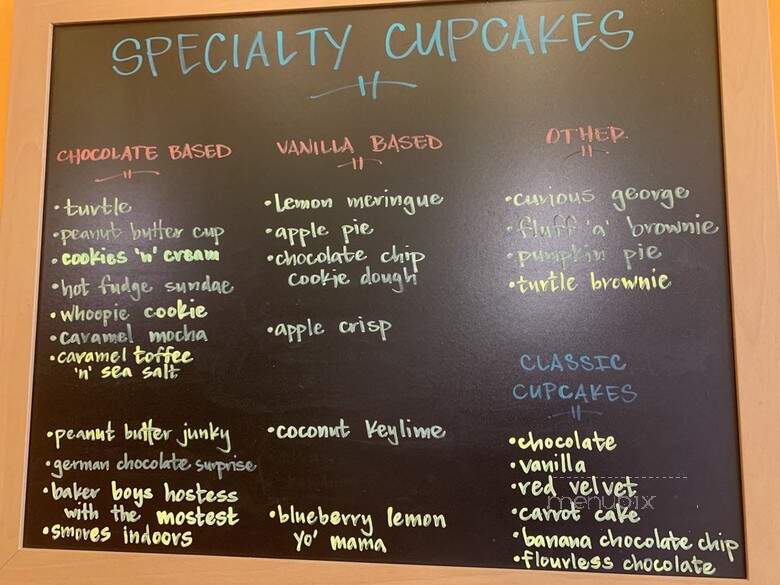 SPECIALTY CUPCAKES
CHOCOLATE BASED
• turtle
• peanut butter cup
• cookies 'n' cream
• hot fudge sundae
• whoopie cookie
• caramel mocha
• caramel toffee
'n' sea salt
• peanut butter junky
• german chocolate surprise
• baker boys hostess
with the mostest
• smores indoors
VANILLA BASED
• Lemon meringue
• apple pie
• chocolate chip
cookie dough
• apple crisp
• coconut Keylime
• blueberry lemon
yo' mama
OTHER
• curious george
• fluff 'a' brownie
• pumpkin pie
• turtle brownie
CLASSIC
CUPCAKES
• chocolate
• vanilla
• red velvet
menupix
• carrot cake
• banana chocolate chip
• flourless chocolate